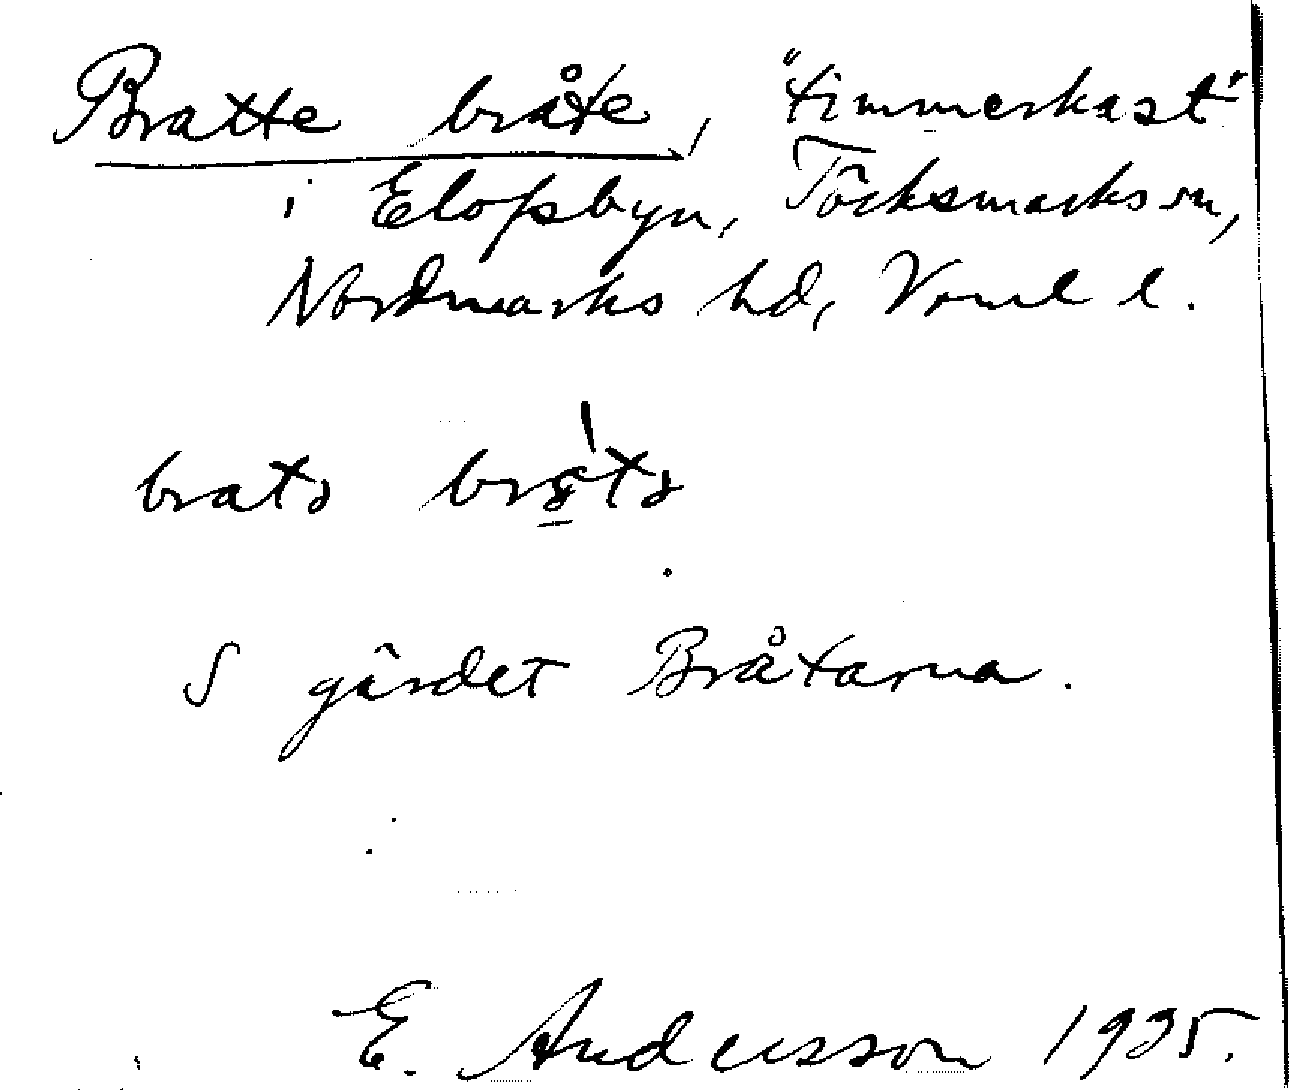 Bratte bråte, "timmerkast"
i Elofsbyn, Töcksmarks sn,
Nordmarks hd, Vrml l.
S gärdet Bråtarna.
E. Andersson 1935.